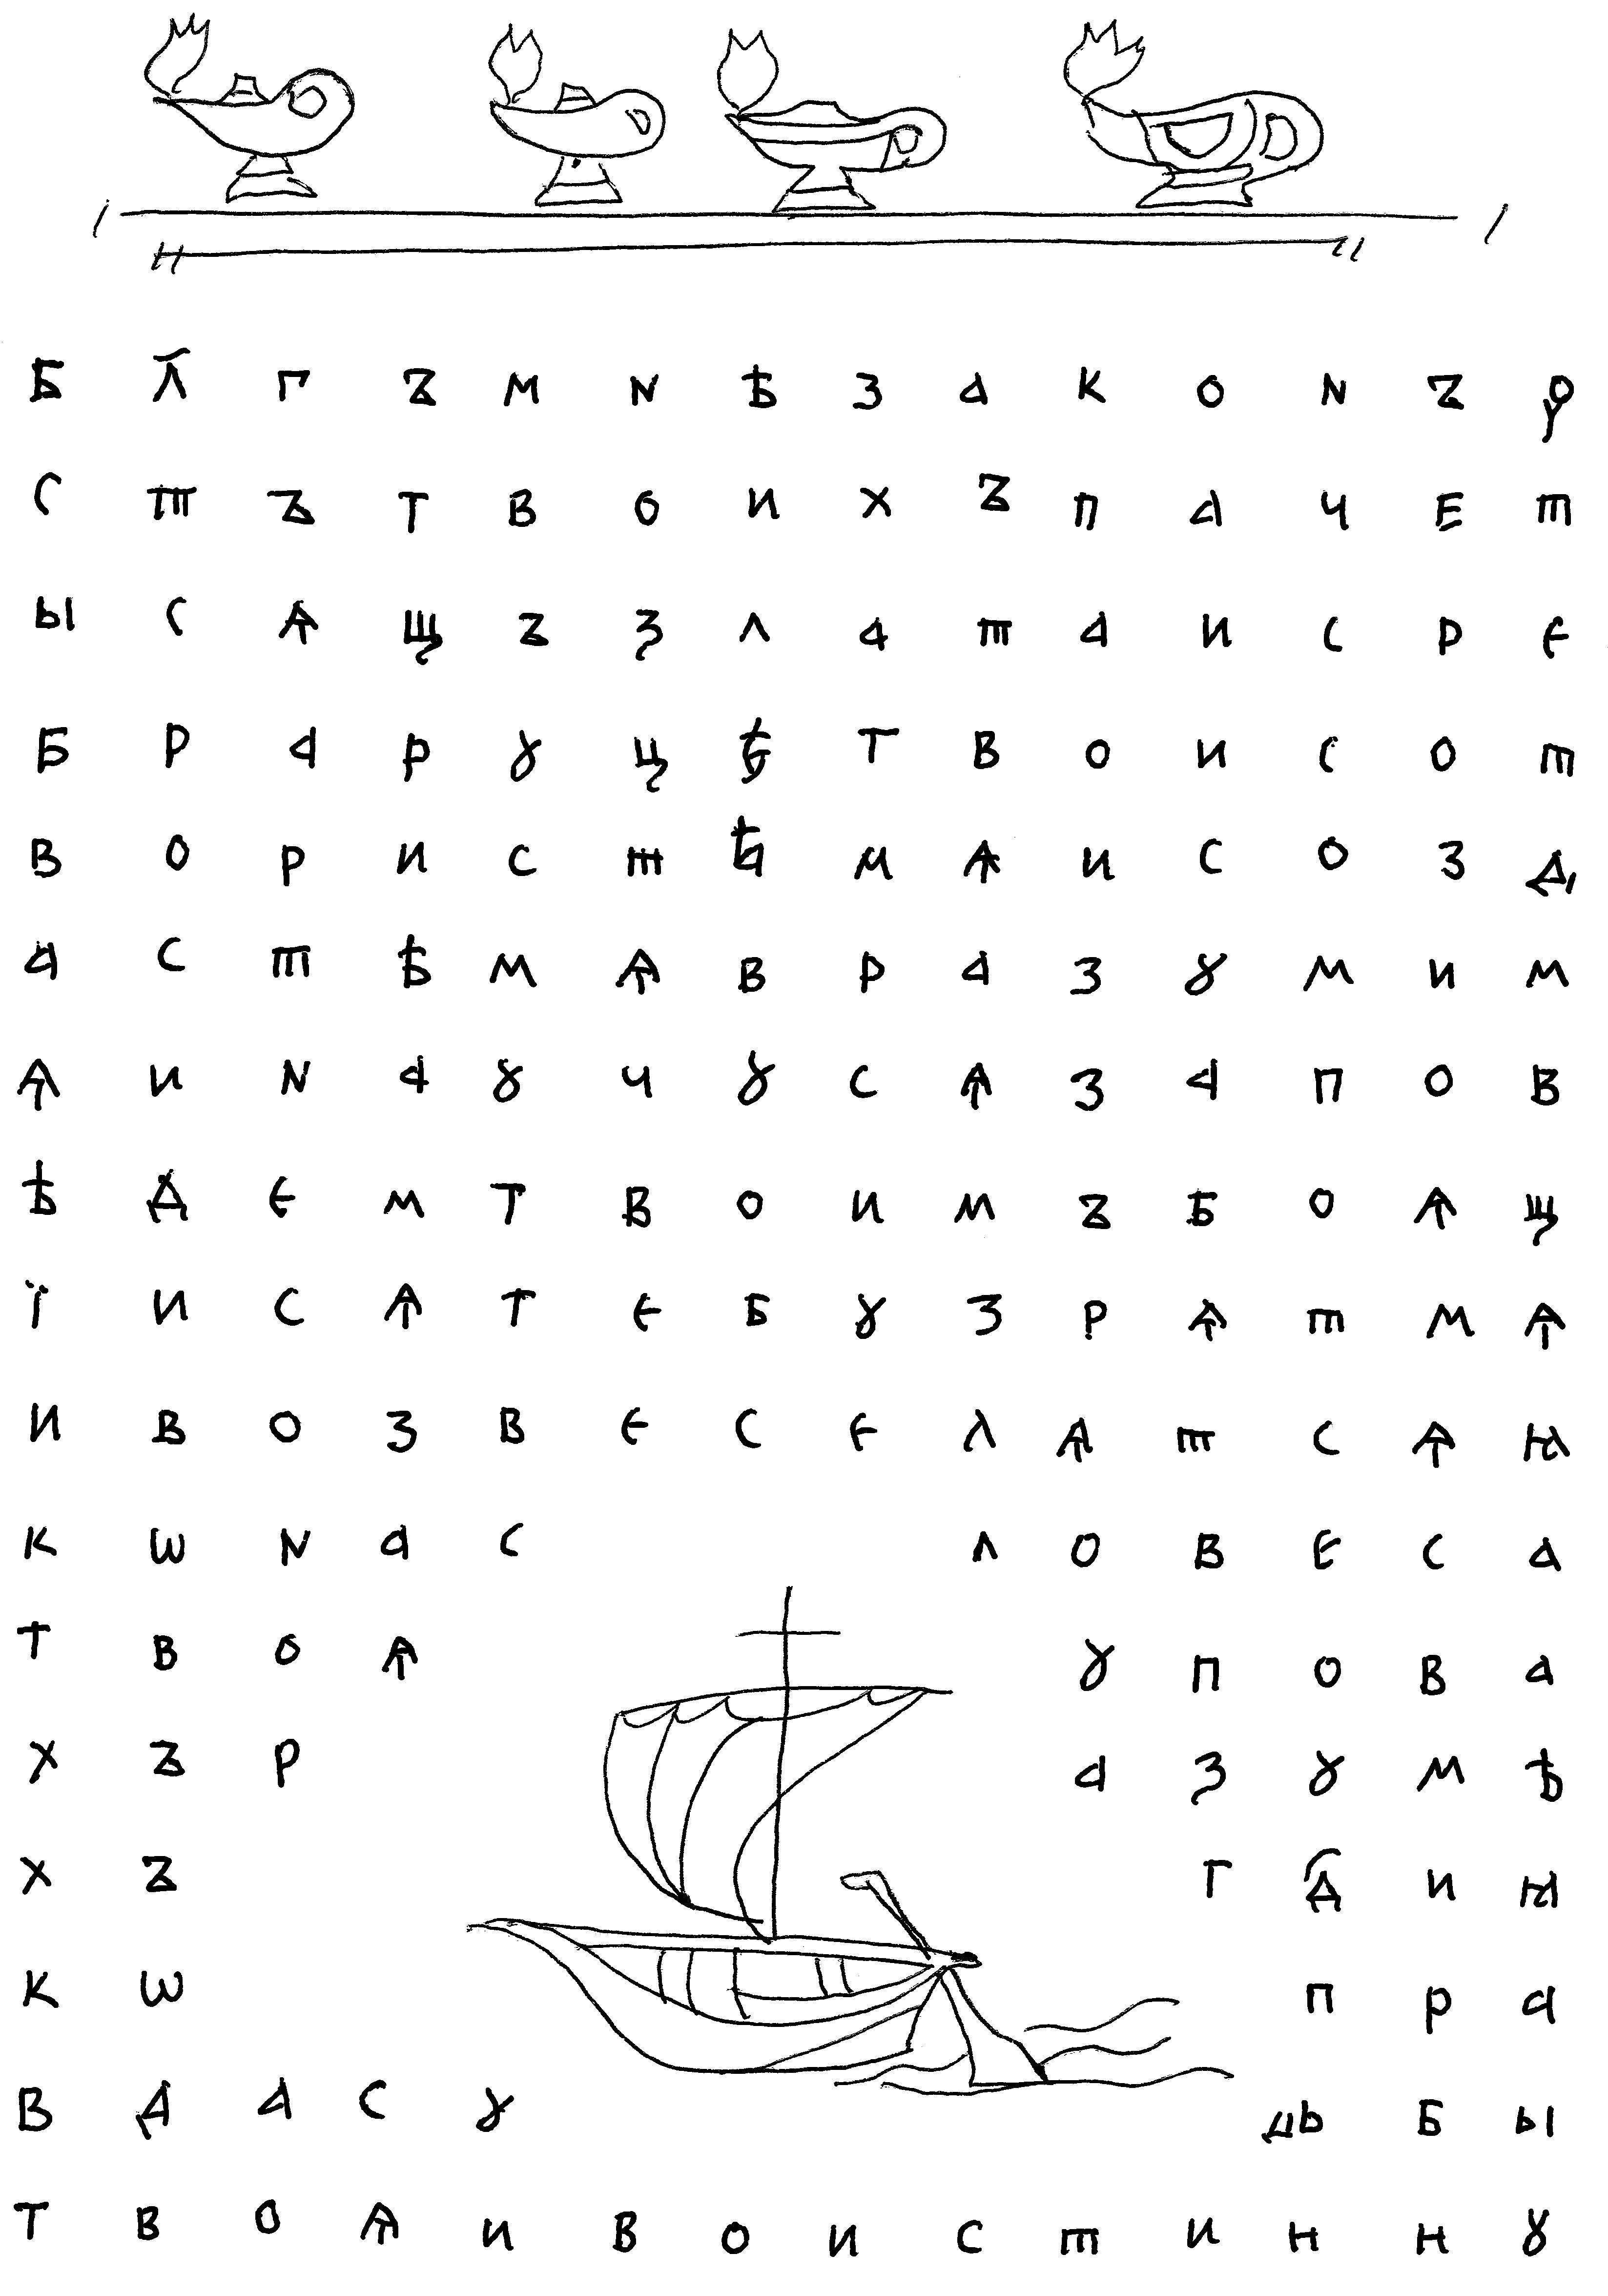 Б Л҃ Г Ъ М N Ѣ З А К О N Ъ Ѹ
С Т Ъ Т В О И Х Ъ П А Ч Е Т
Ы С Ѧ Щ Ъ З Л А Т А И С Р Е
Б Р А Р Ꙋ Ц Ѣ Т В О И С О Т
В О Р И С Т Ѣ М Ѧ И С О З Д
А С Т Ѣ М Ѧ В Р А З Ꙋ М И М
Ѧ И N А Ꙋ Ч Ꙋ С Ѧ З А П О В
Ѣ Д Е М Т В О И М Ъ Б О Ѧ Щ
Ї И С Ѧ Т Е Б Ꙋ З Р Ѧ Т М Ѧ
И В О З В Е С Е Л Ѧ Т С Ѧ Ꙗ
К Ѡ N А С Л О В Е С А
Т В О Ѧ Ꙋ П О В А
Х Ъ Р А З Ꙋ М Ѣ
Х Ъ Г Д҃ И Ꙗ
К Ѡ П Р А
В Д А С Ꙋ ДЬ Б Ы
Т В О Ѧ И В О И С Т И Н Н Ꙋ